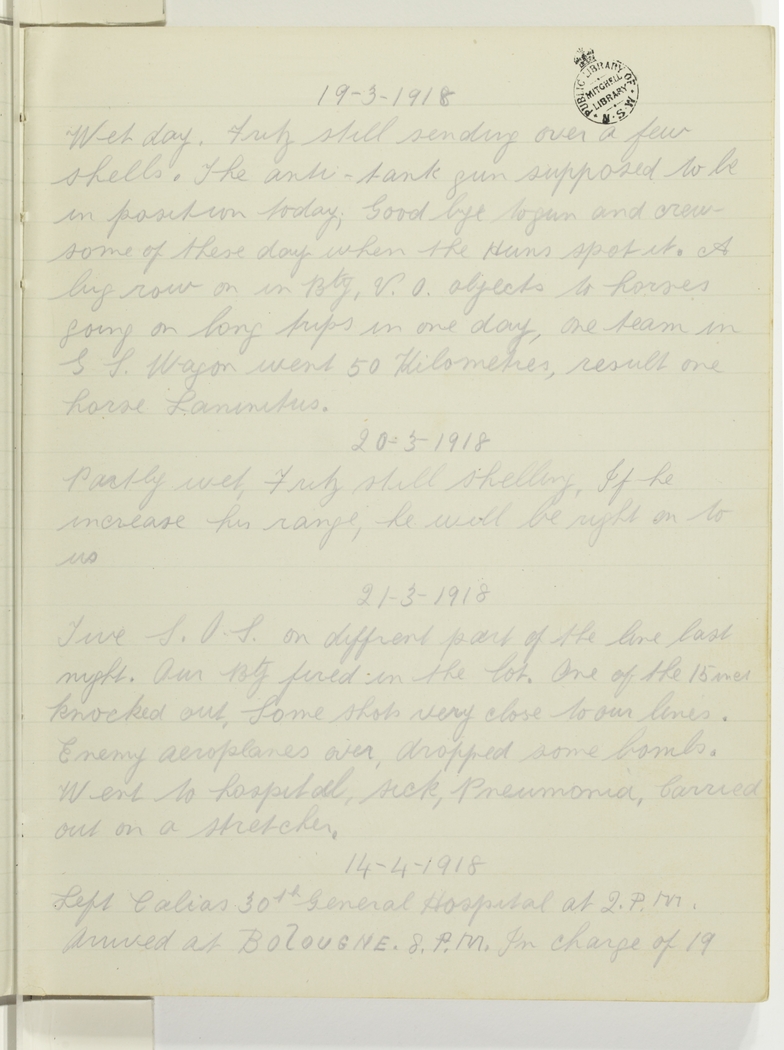 PUBLIC LIBRARY OF N.S.W.
MITCHELL
LIBRARY
19-3-1918
Wet day. Fritz still sending over a few
shells. The anti-tank gun supposed to be
in position today; Good bye to gun and crew
some of these day when the Huns spot it. A
big row on in Bty, V. O. objects to horses
going on long trips in one day, one team in
G S. Wagon went 50 Kilometres, result one
horse Laminitus.
20-3-1918
Partly wet, Fritz still shelling, If he
increase his range, he will be right on to
us
21-3-1918
Five S.O.S. on diffrent part of the line last
night. Our Bty fired in the lot. One of the 15 inch
knocked out, Some shots very close to our lines.
Enemy aeroplanes over, dropped some bombs.
Went to hospital, sick, Pneumonia, Carried
out on a stretcher.
14-4-1918
Left Calias 30th General Hospital at 2.P.M.
Arrived at BOLOUGNE. 8.P.M. In charge of 19